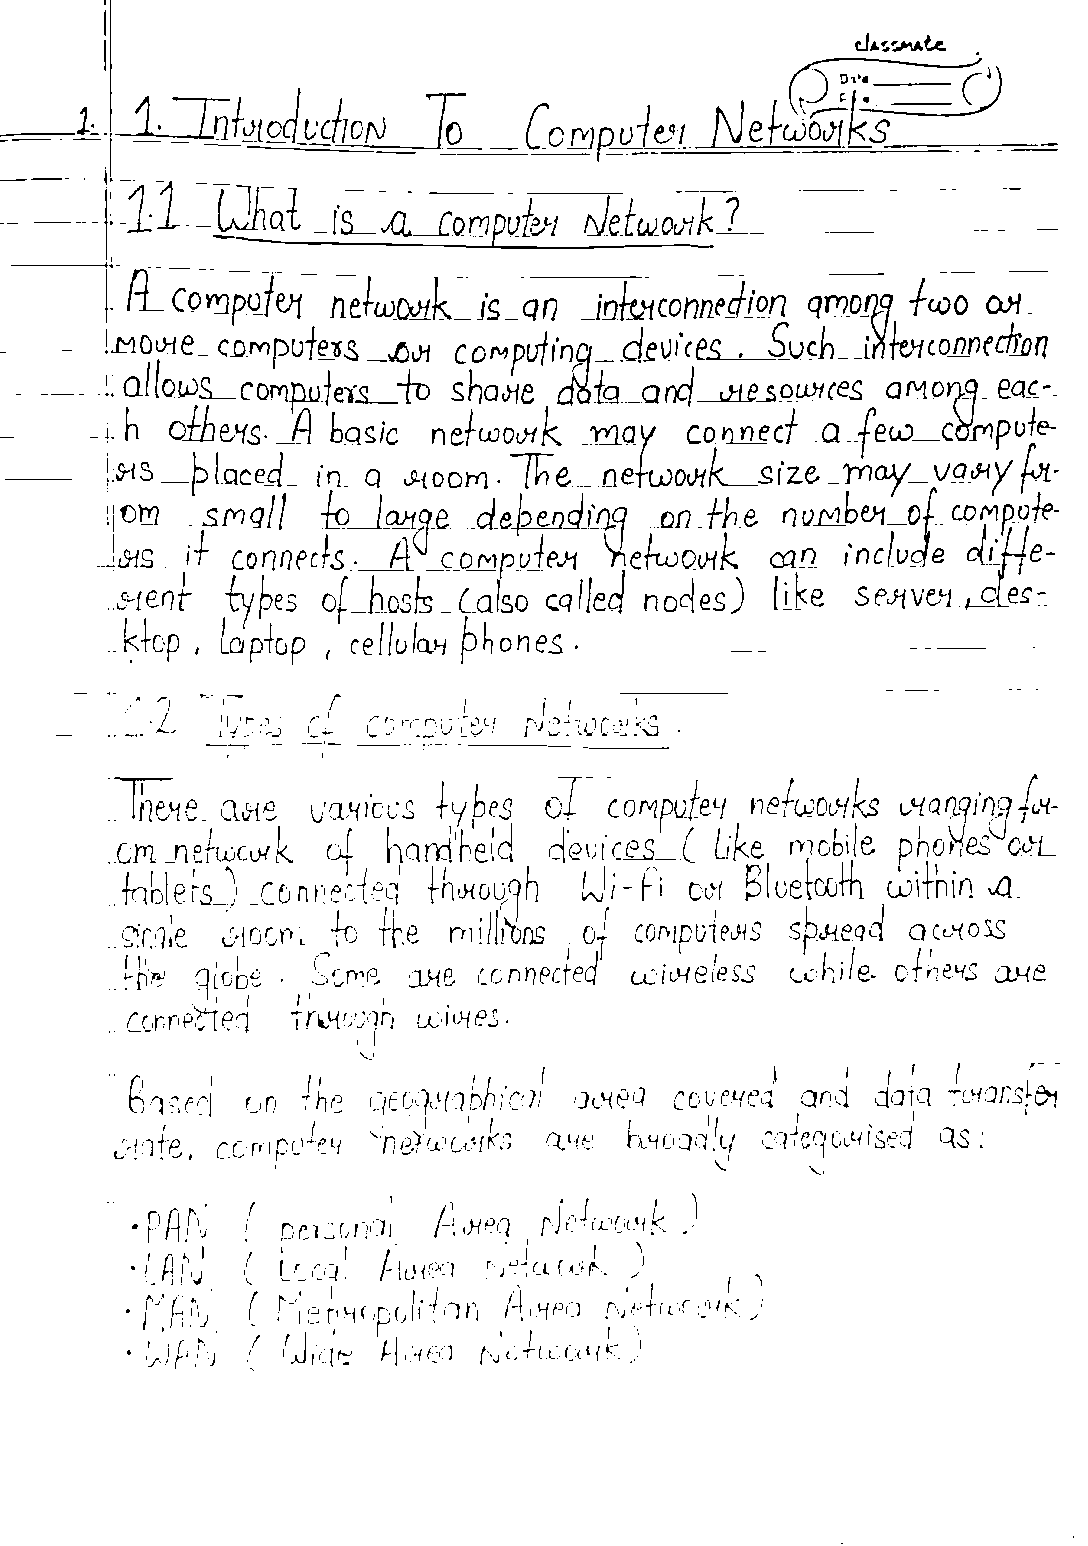 classmate
Date
1. 1. Introduction To Computer Networks
1.1 What is a computer Network?
A computer network is an interconnection among two or
more computers or computing devices. Such interconnection
allows computers to share data and resources among eac-
h others. A basic network may connect a few compute-
rs placed in a room. The network size may vary fr-
om small to large depending on the number of compute-
rs it connects. A computer network can include diffe-
rent types of hosts (also called nodes) like server, des-
ktop, laptop, cellular phones.
1.2 Types of computer Networks.
There are various types of computer networks ranging fr-
om network of handheld devices (like mobile phones or
tablets) connected through Wi-Fi or Bluetooth within a
single room to the millions of computers spread across
the globe. Some are connected wireless while others are
connected through wires.
Based on the geographical area covered and data transfer
rate, computer networks are broadly categorised as:
• PAN (personal Area Network)
• LAN (Local Area Network)
• MAN (Metropolitan Area Network)
• WAN (Wide Area Network)